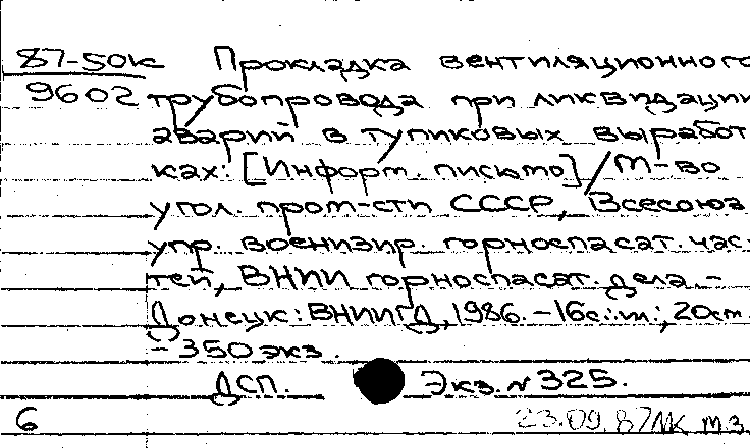 87-50к Прокладка вентиляционного
9602 трубопровода при ликвидации
аварий в тупиковых выработ
ках: [Информ. письмо] / М-во
угол. пром-сти СССР, Всесоюз
упр. военизир. горноспасат. час-
тей, ВНИИ горноспасат. дела. -
Донецк: ВНИИГД, 1986. - 16с.: ил.; 20см.
- 350 экз.
ДСП. Экз. № 325.
6 23.09.87